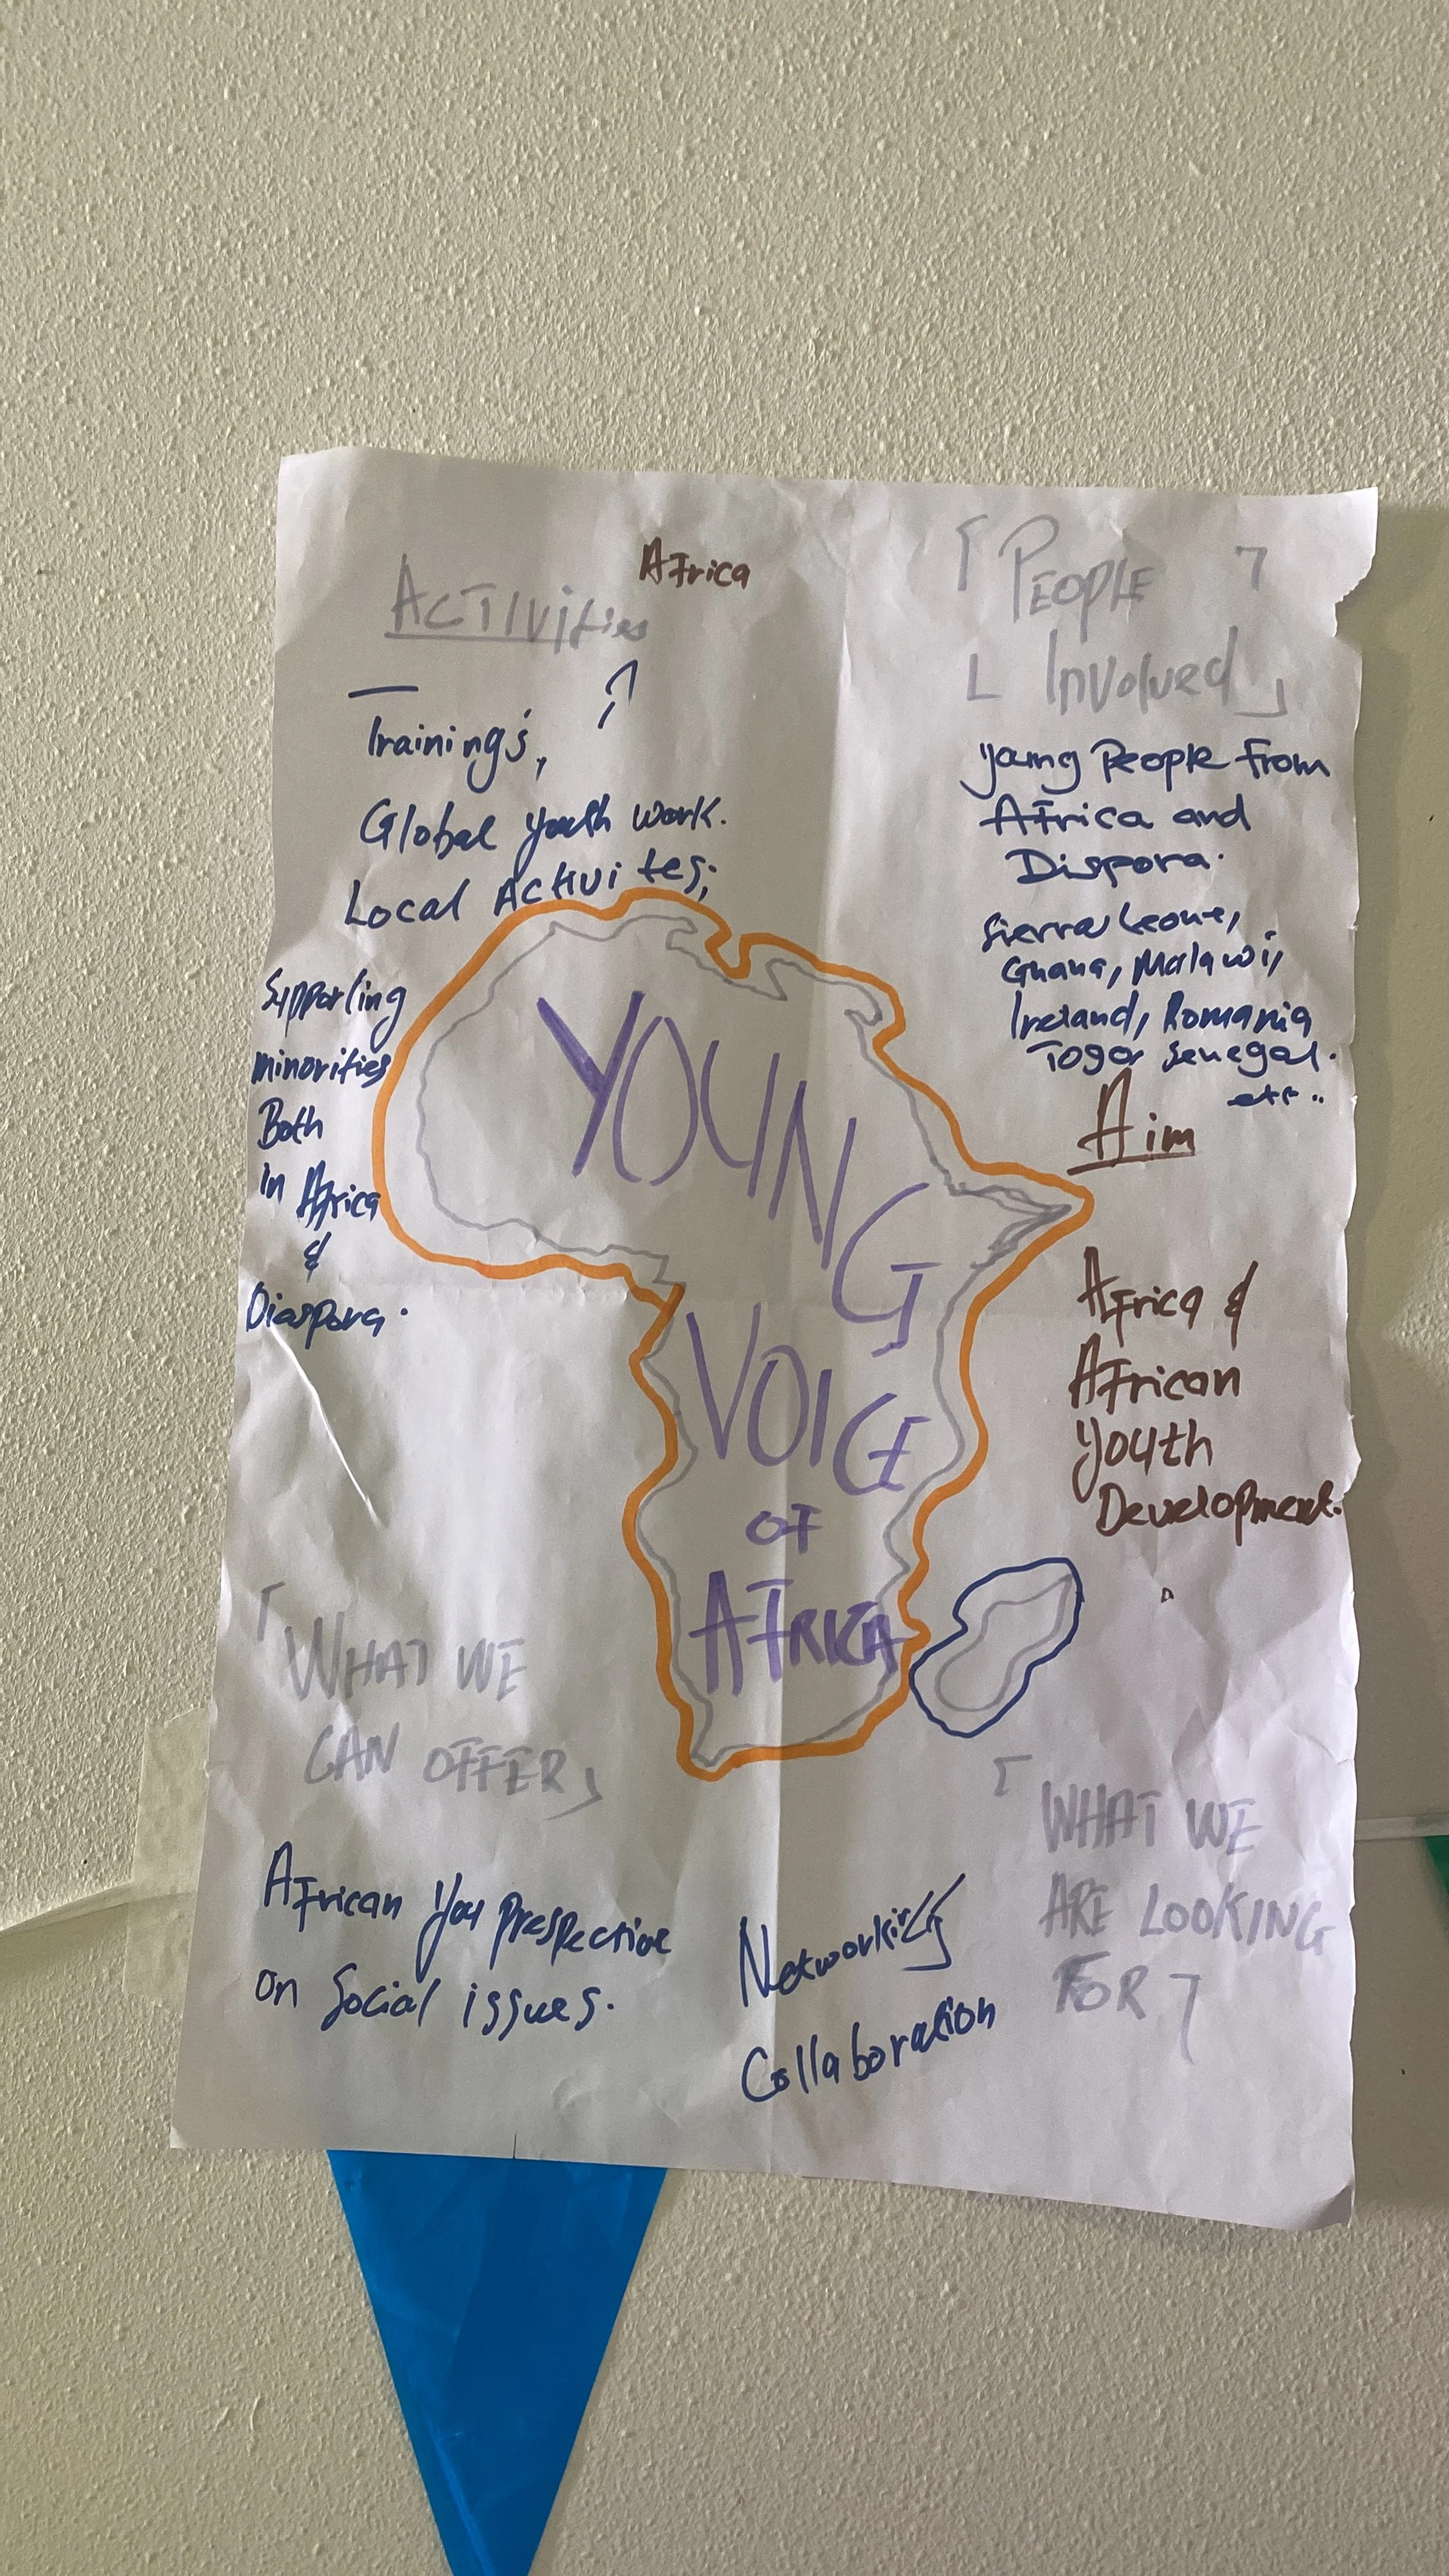 Africa
ACTIVities
Trainings,
Global youth work.
Local Activites;
Supporting
minorities
Both
in Africa
&
Diaspora.
PEOPLE
Involved
young People From
Africa and
Dispora.
Sierra Leone,
Ghana, Malawi,
Ireland, Romania
Togo Senegal.
etc..
Aim
Africa &
African
Youth
Development.
YOUNG
VOICE
OF
AFRICA
WHAT WE
CAN OFFER
African You Prespective
on Social issues.
WHAT WE
ARE LOOKING
FOR
Networking
Collaboration